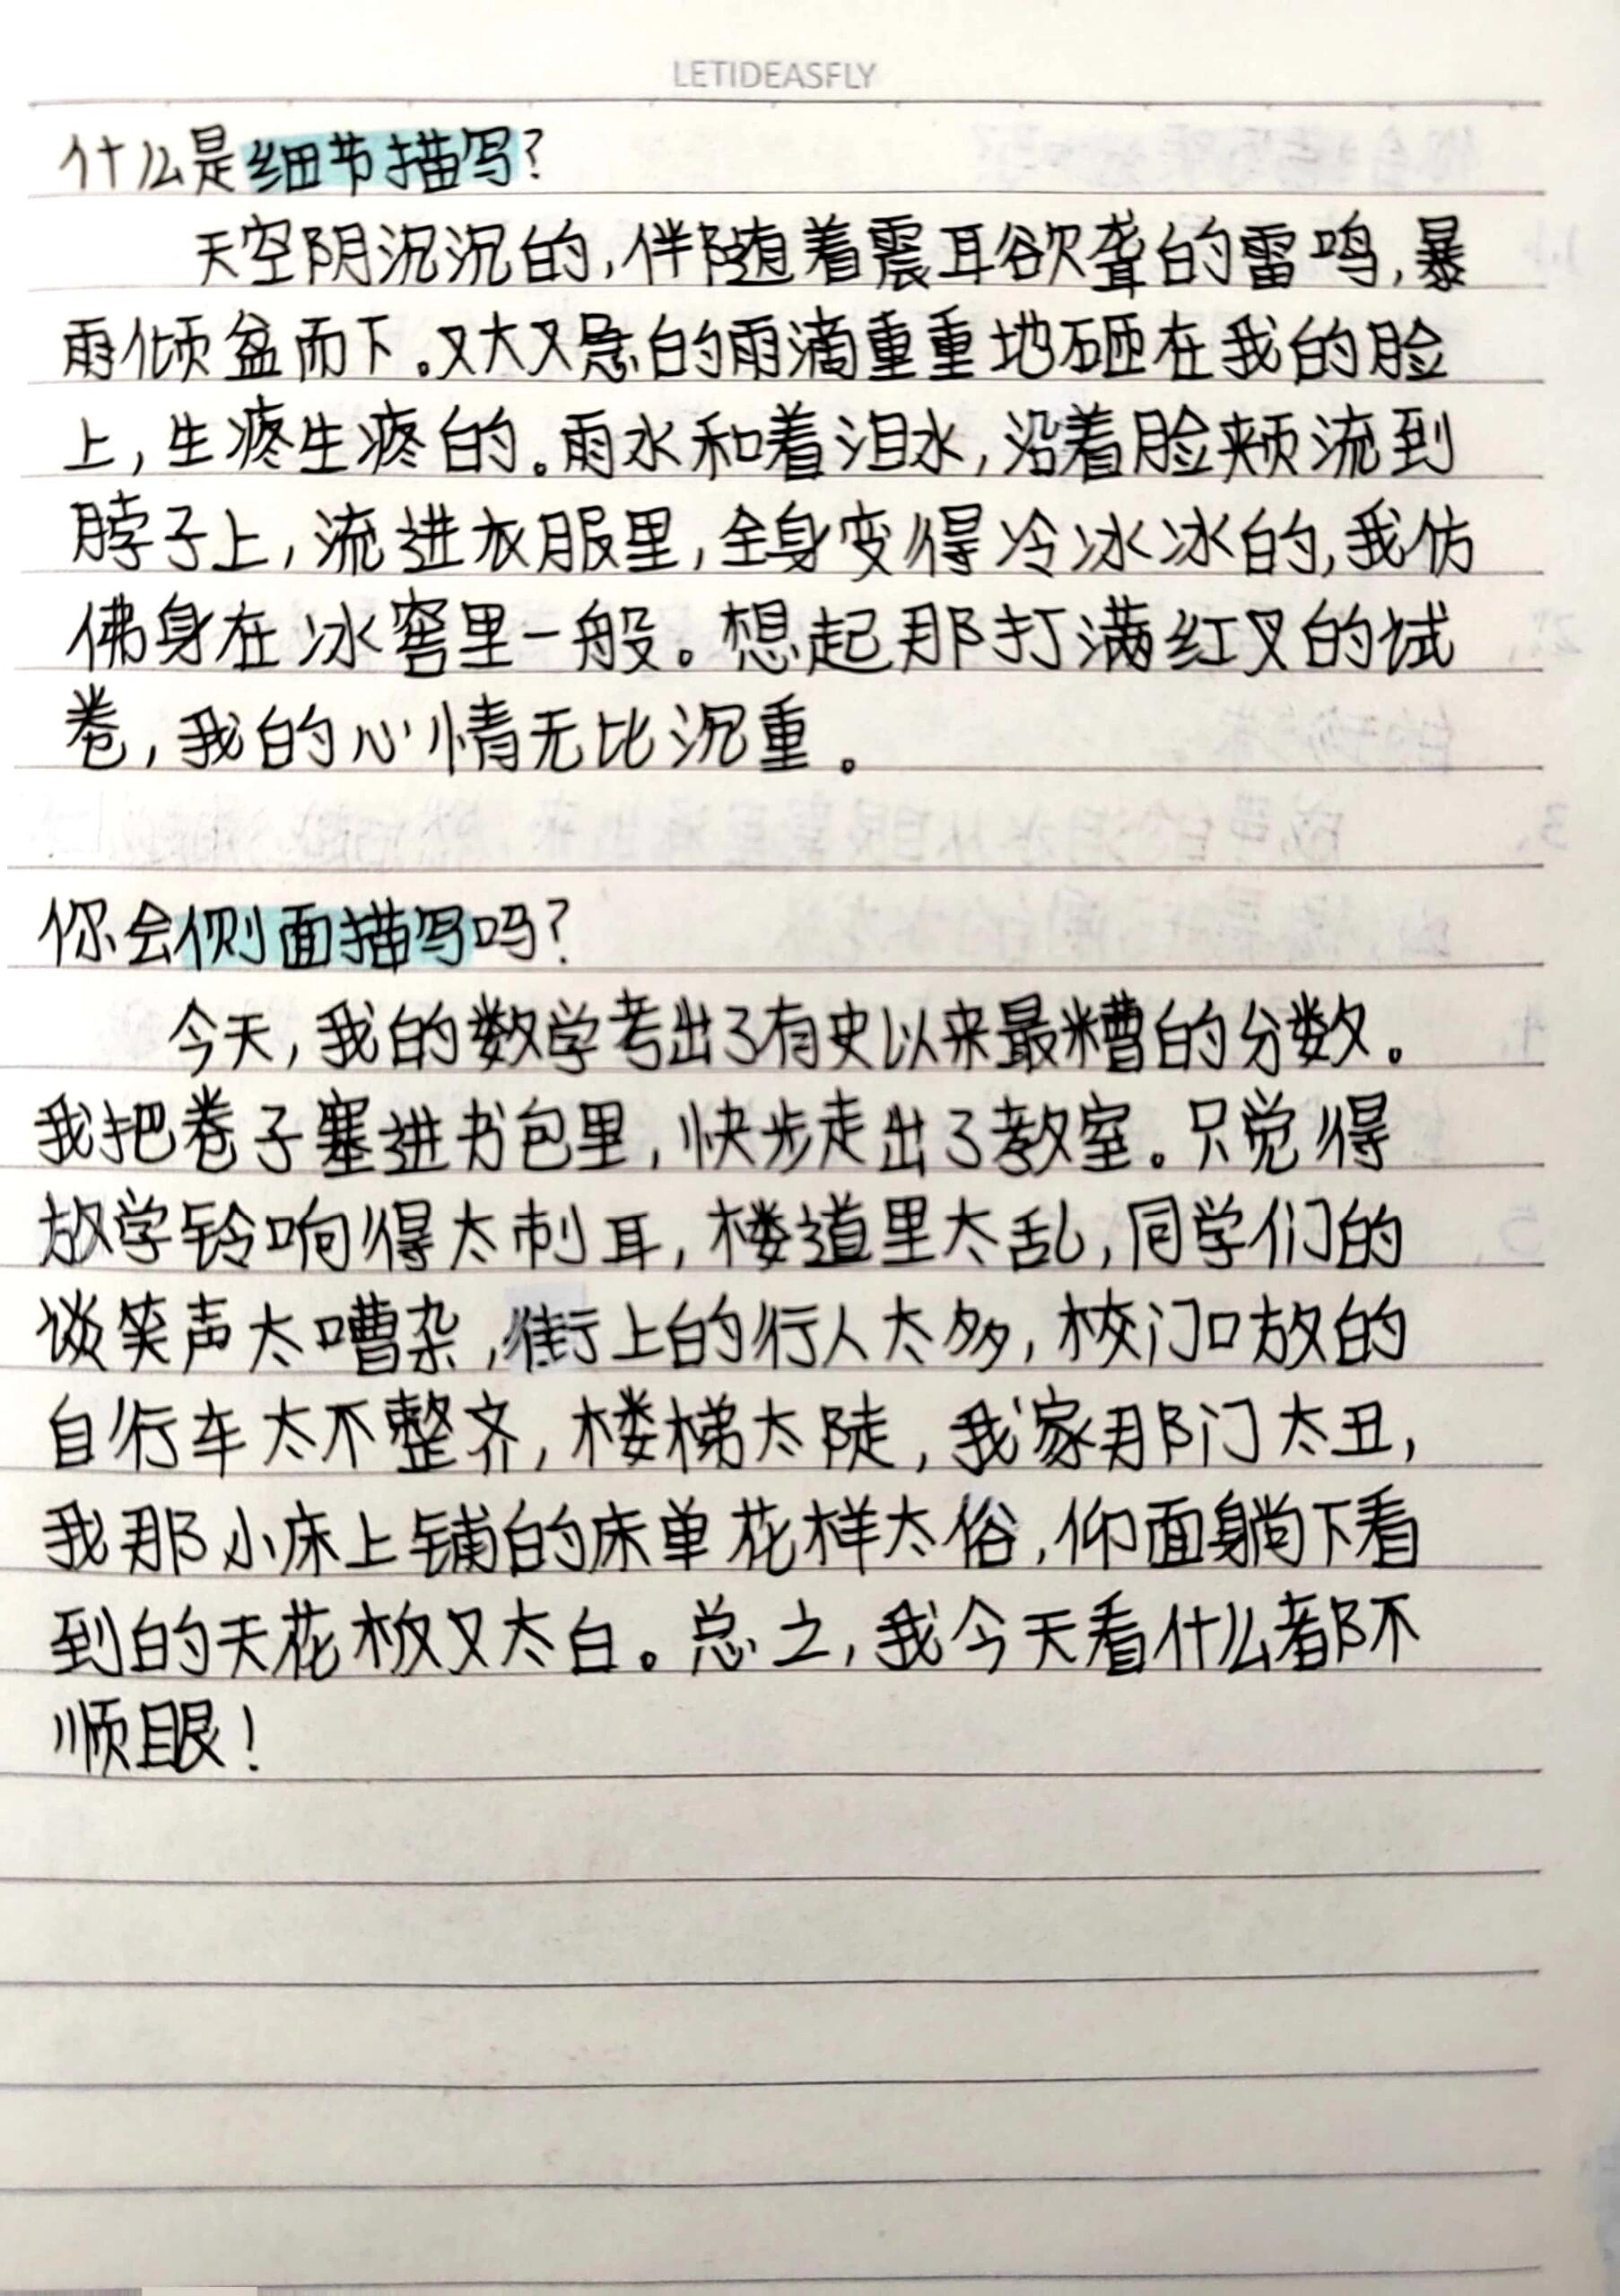 LETIDEASFLY
什么是细节描写?
天空阴沉沉的,伴随着震耳欲聋的雷鸣,暴
雨倾盆而下。又大又急的雨滴重重地砸在我的脸
上,生疼生疼的。雨水和着泪水,沿着脸颊流到
脖子上,流进衣服里,全身变得冷冰冰的,我仿
佛身在冰窖里一般。想起那打满红叉的试
卷,我的心情无比沉重。
你会侧面描写吗?
今天,我的数学考出了有史以来最糟的分数。
我把卷子塞进书包里,快步走出了教室。只觉得
放学铃响得太刺耳,楼道里太乱,同学们的
谈笑声太嘈杂,街上的行人太多,校门口放的
自行车太不整齐,楼梯太陡,我家那门太丑,
我那小床上铺的床单花样太俗,仰面躺下看
到的天花板又太白。总之,我今天看什么都不
顺眼!